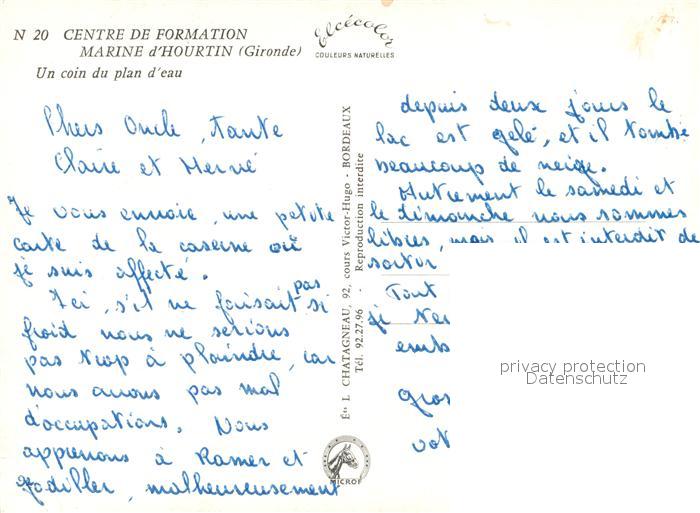 N 20 CENTRE DE FORMATION
MARINE d'HOURTIN (Gironde)
Un coin du plan d'eau
Elcécolor
COULEURS NATURELLES
Chers Oncle, Tante
Claire et Hervé
Je vous envoie, une petite
carte de la caserne où
je suis affecté.
Ici, s'il ne faisait pas si
froid nous ne serions
pas trop à plaindre, car
nous avons pas mal
d'occupations. Nous
apprenons à ramer et
godiller, malheureusement
Éts L CHATAGNEAU, 92, cours Victor-Hugo - BORDEAUX
Tél. 92.27.96 - Reproduction interdite
MICROF
depuis deux jours le
lac est gelé, et il tombe
beaucoup de neige.
Autrement le samedi et
le dimanche nous sommes
libres, mais il est interdit de
sortir
Tout
je
emb
Gros
vot
privacy protection
Datenschutz